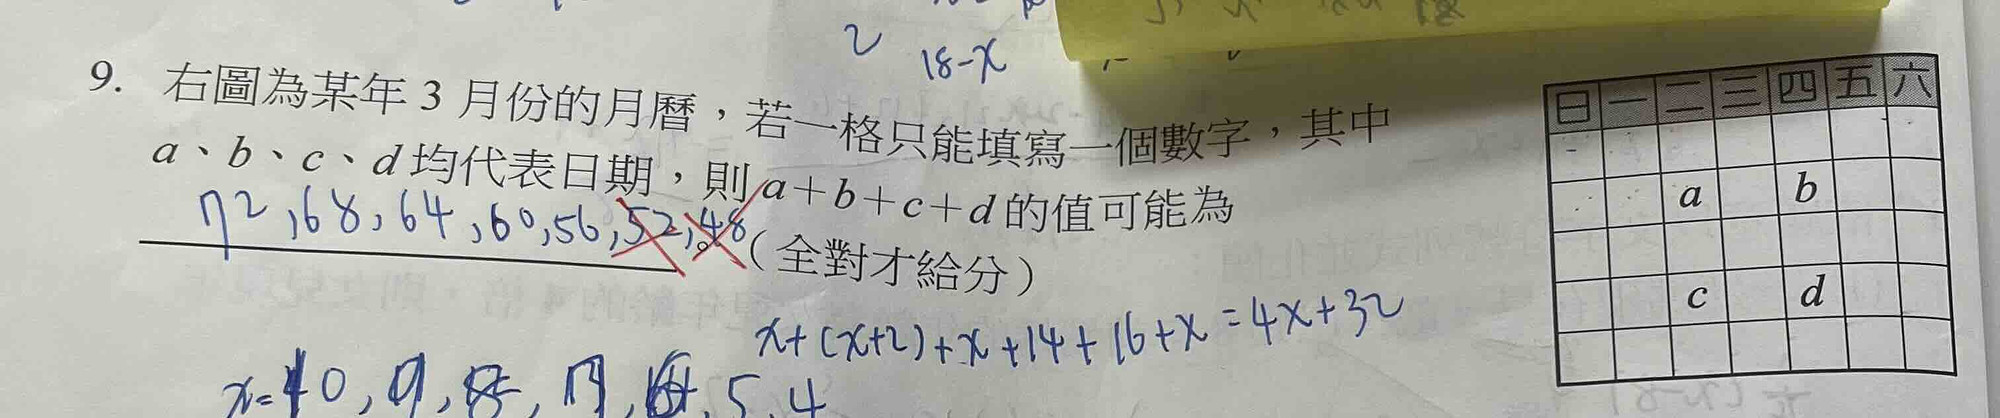 2
18-x
9. 右圖為某年 3 月份的月曆,若一格只能填寫一個數字,其中
a、b、c、d 均代表日期,則 a+b+c+d 的值可能為
72,68,64,60,56,52,48。(全對才給分)
x+(x+2)+x+14+16+x=4x+32
x=10,9,8,7,6,5,4
日 一 二 三 四 五 六
a b
c d